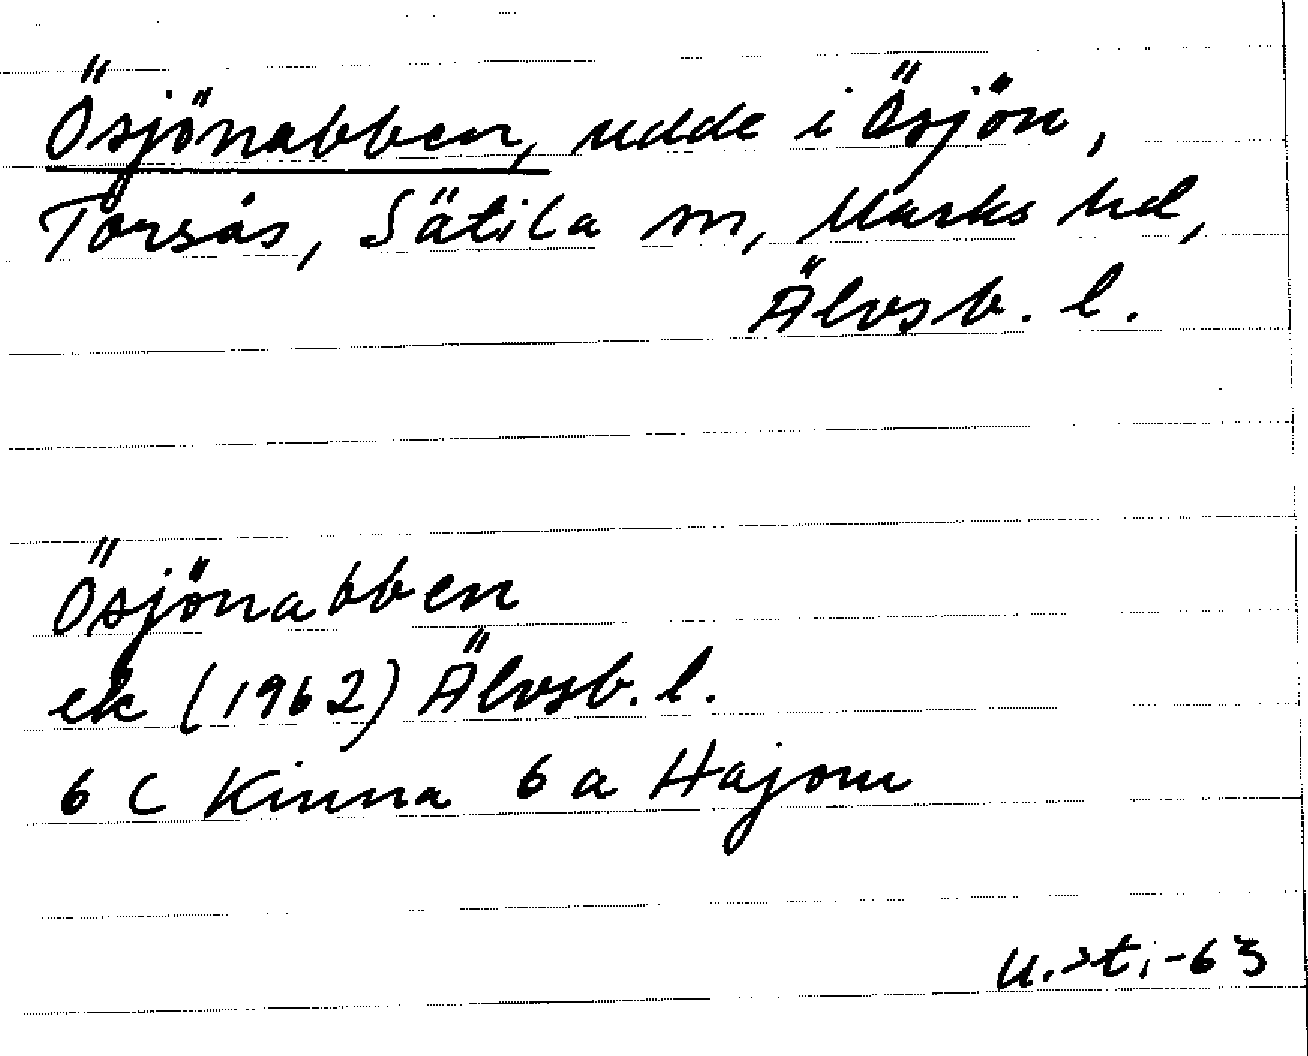 Ösjönabben, udde i Ösjön,
Torsås, Sätila sn, Marks hd,
Älvsb. l.
Ösjönabben
ek (1962) Älvsb. l.
6 C Kinna 6 a Hajom
-63